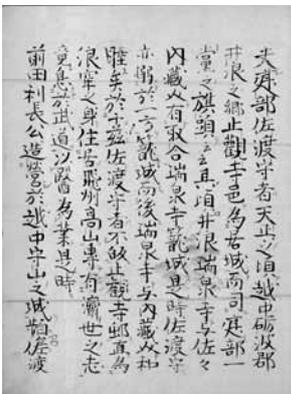 夫斎部佐渡守者天正之頃越中砺波郡
井浪之郷止觀寺邑為居城而司斎部一
党之旗頭云云其頃井浪瑞泉寺与佐々
内藏助有取合瑞泉寺籠城是時佐渡守
亦弱於一方籠城而後瑞泉寺与内藏助和
睦矣於于茲佐渡守者不敢止觀寺邨直為
浪牢之身住居飛州高山專有濟世之志
竟息於武道以醫為業是時
前田利長公造營於越中守山之城賴佐渡